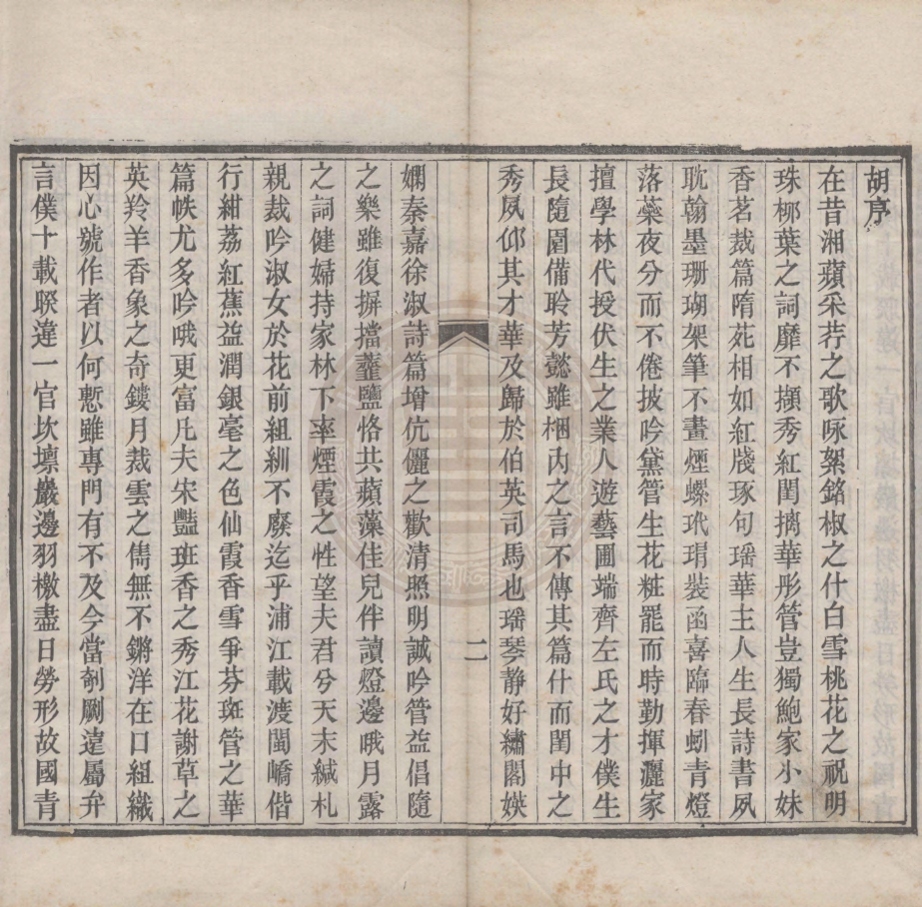 胡序
在昔湘蘋采荇之歌咏絮銘椒之什白雪桃花之祝明
珠柳葉之詞靡不擷秀紅閨摛華彤管豈獨鮑家小妹
香茗裁篇隋苑相如紅牋琢句瑶華主人生長詩書夙
耽翰墨珊瑚架筆不畫煙螺玳瑁裝函喜臨春蚓青燈
落蘂夜分而不倦披吟黛管生花粧罷而時勤揮灑家
擅學林代授伏生之業人遊藝圃端齊左氏之才僕生
長隨圍備聆芳懿雖梱內之言不傳其篇什而閨中之
秀夙仰其才華及歸於伯英司馬也瑶琴静好繡閣媖
二
嫻秦嘉徐淑詩篇增伉儷之歡清照明誠吟管益倡隨
之樂雖復摒擋虀鹽恪共蘋藻佳兒伴讀燈邊哦月露
之詞健婦持家林下率煙霞之性望夫君兮天末緘札
親裁吟淑女於花前組紃不廢迄乎浦江載渡閩嶠偕
行紺荔紅蕉益潤銀毫之色仙霞香雪爭芬斑管之華
篇帙尤多吟哦更富凡夫宋豔班香之秀江花謝草之
英羚羊香象之奇鏤月裁雲之儁無不鏘洋在口組織
因心號作者以何慙雖專門有不及今當剞劂遠屬弁
言僕十載睽違一官坎壈巖邊羽檄盡日勞形故國青